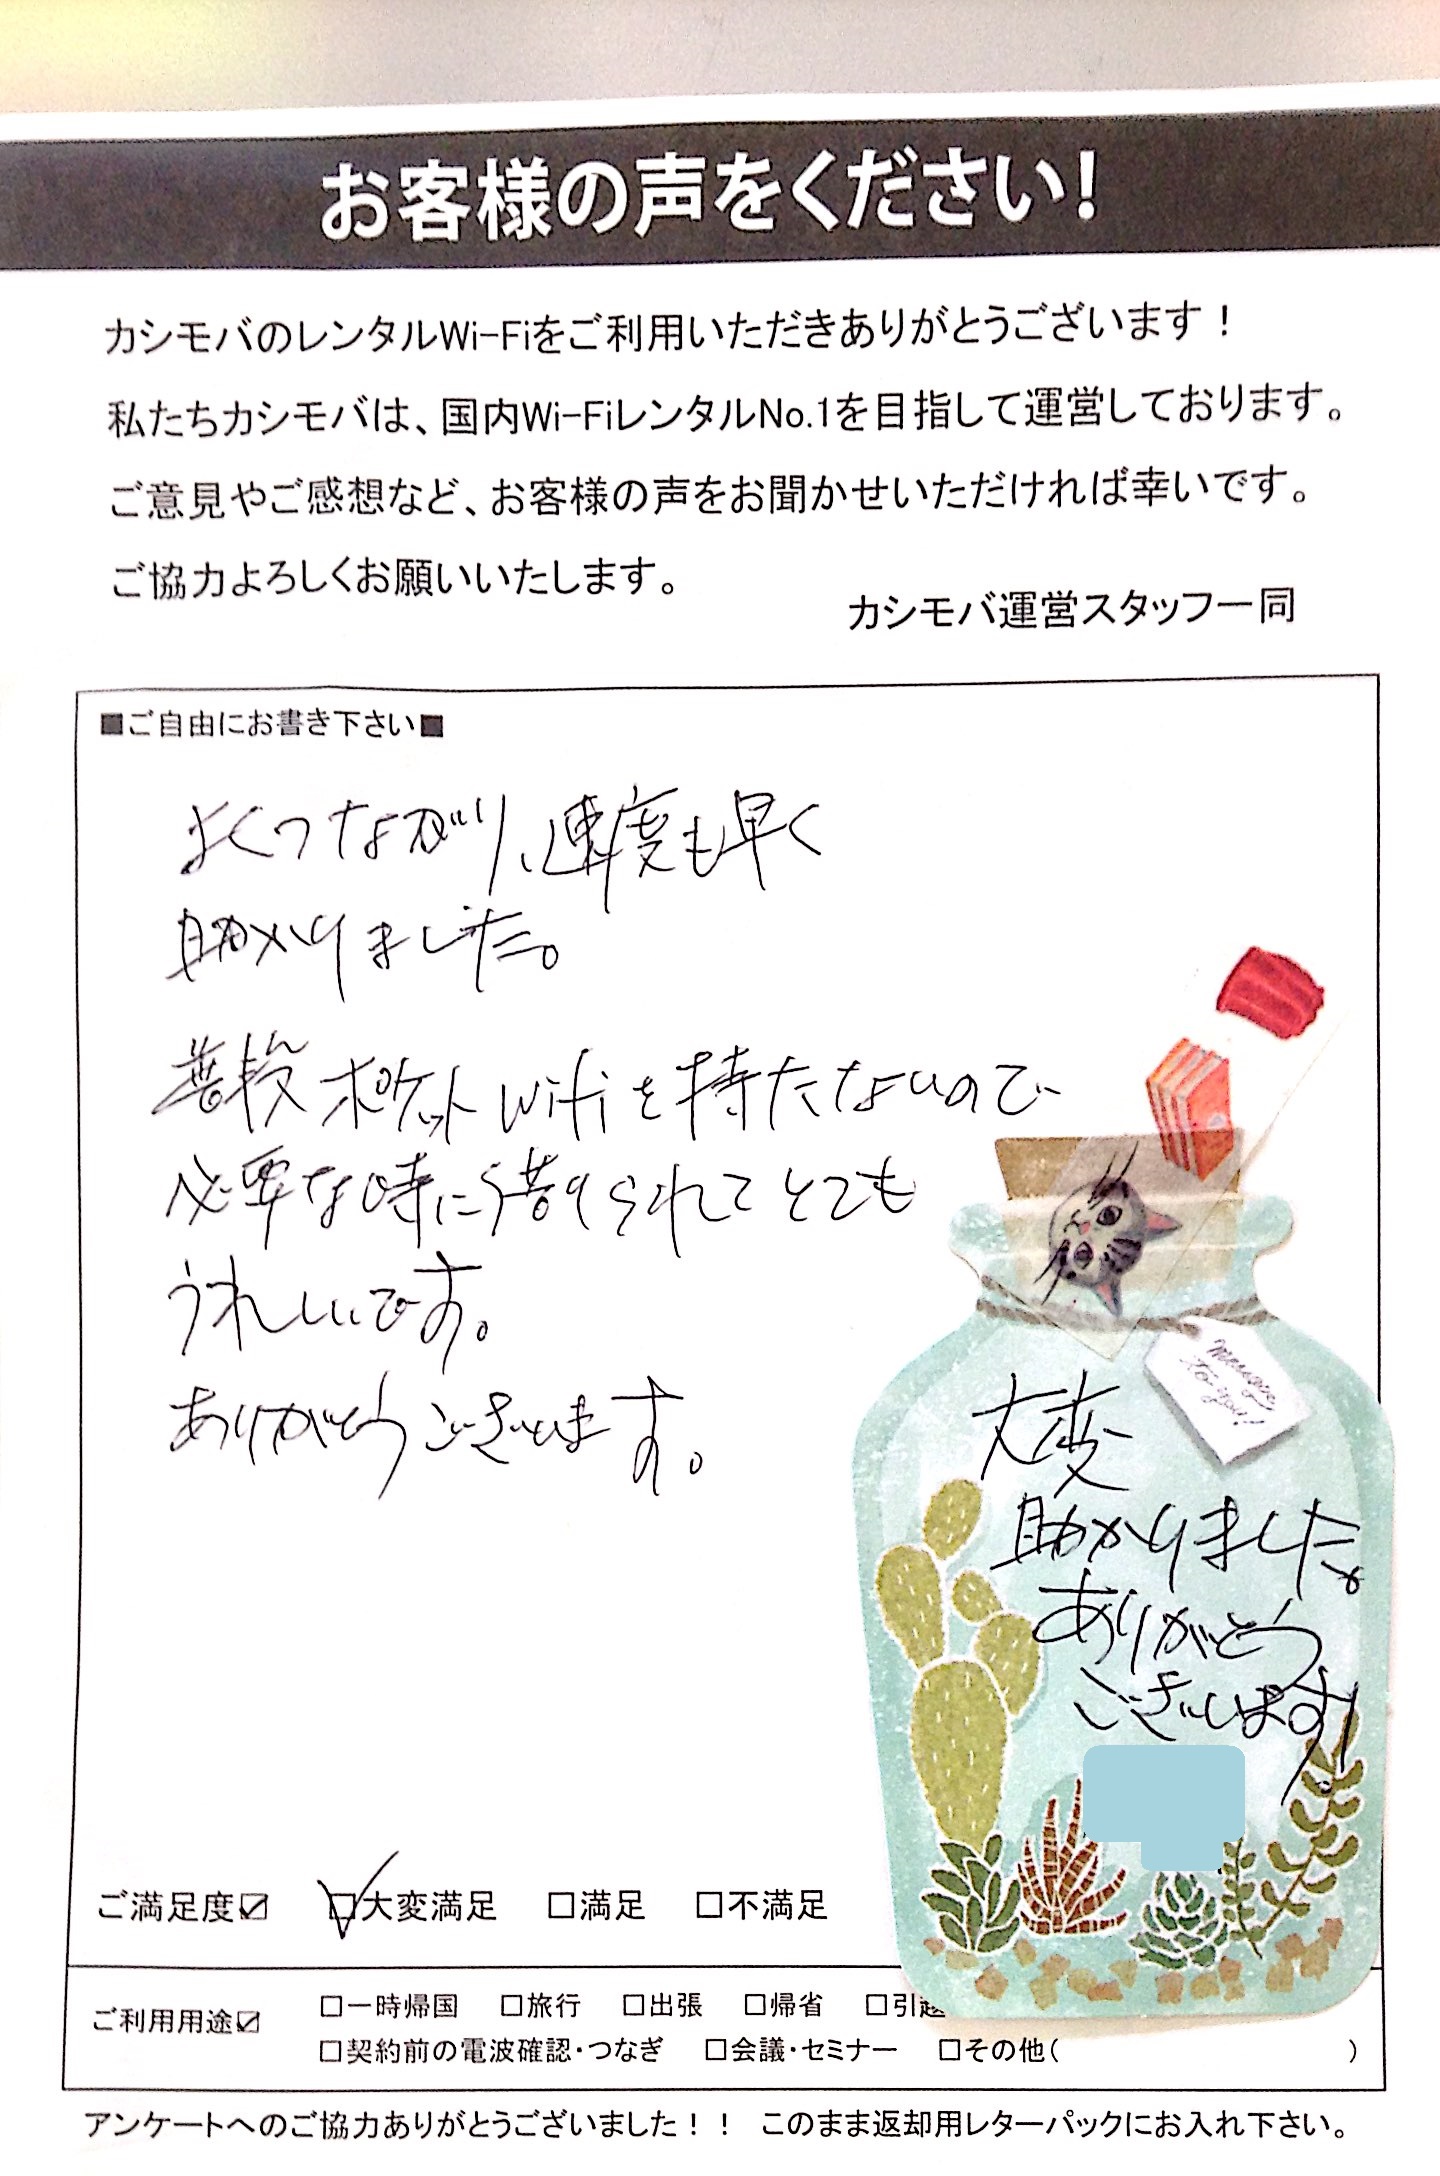 お客様の声をください!
カシモバのレンタルWi-Fiをご利用いただきありがとうございます!
私たちカシモバは、国内Wi-FiレンタルNo.1を目指して運営しております。
ご意見やご感想など、お客様の声をお聞かせいただければ幸いです。
ご協力よろしくお願いいたします。
カシモバ運営スタッフ一同
■ご自由にお書き下さい■
よくつながり、速度も早く
助かりました。
普段ポケットwifiを持たないので
必要な時に借りられてとても
うれしいです。
ありがとうございます。
Message
to you!
大変
助かりました。
ありがとう
ございます!
ご満足度☑ □大変満足 □満足 □不満足
ご利用用途☑ □一時帰国 □旅行 □出張 □帰省 □引越
□契約前の電波確認・つなぎ □会議・セミナー □その他( )
アンケートへのご協力ありがとうございました!! このまま返却用レターパックにお入れ下さい。